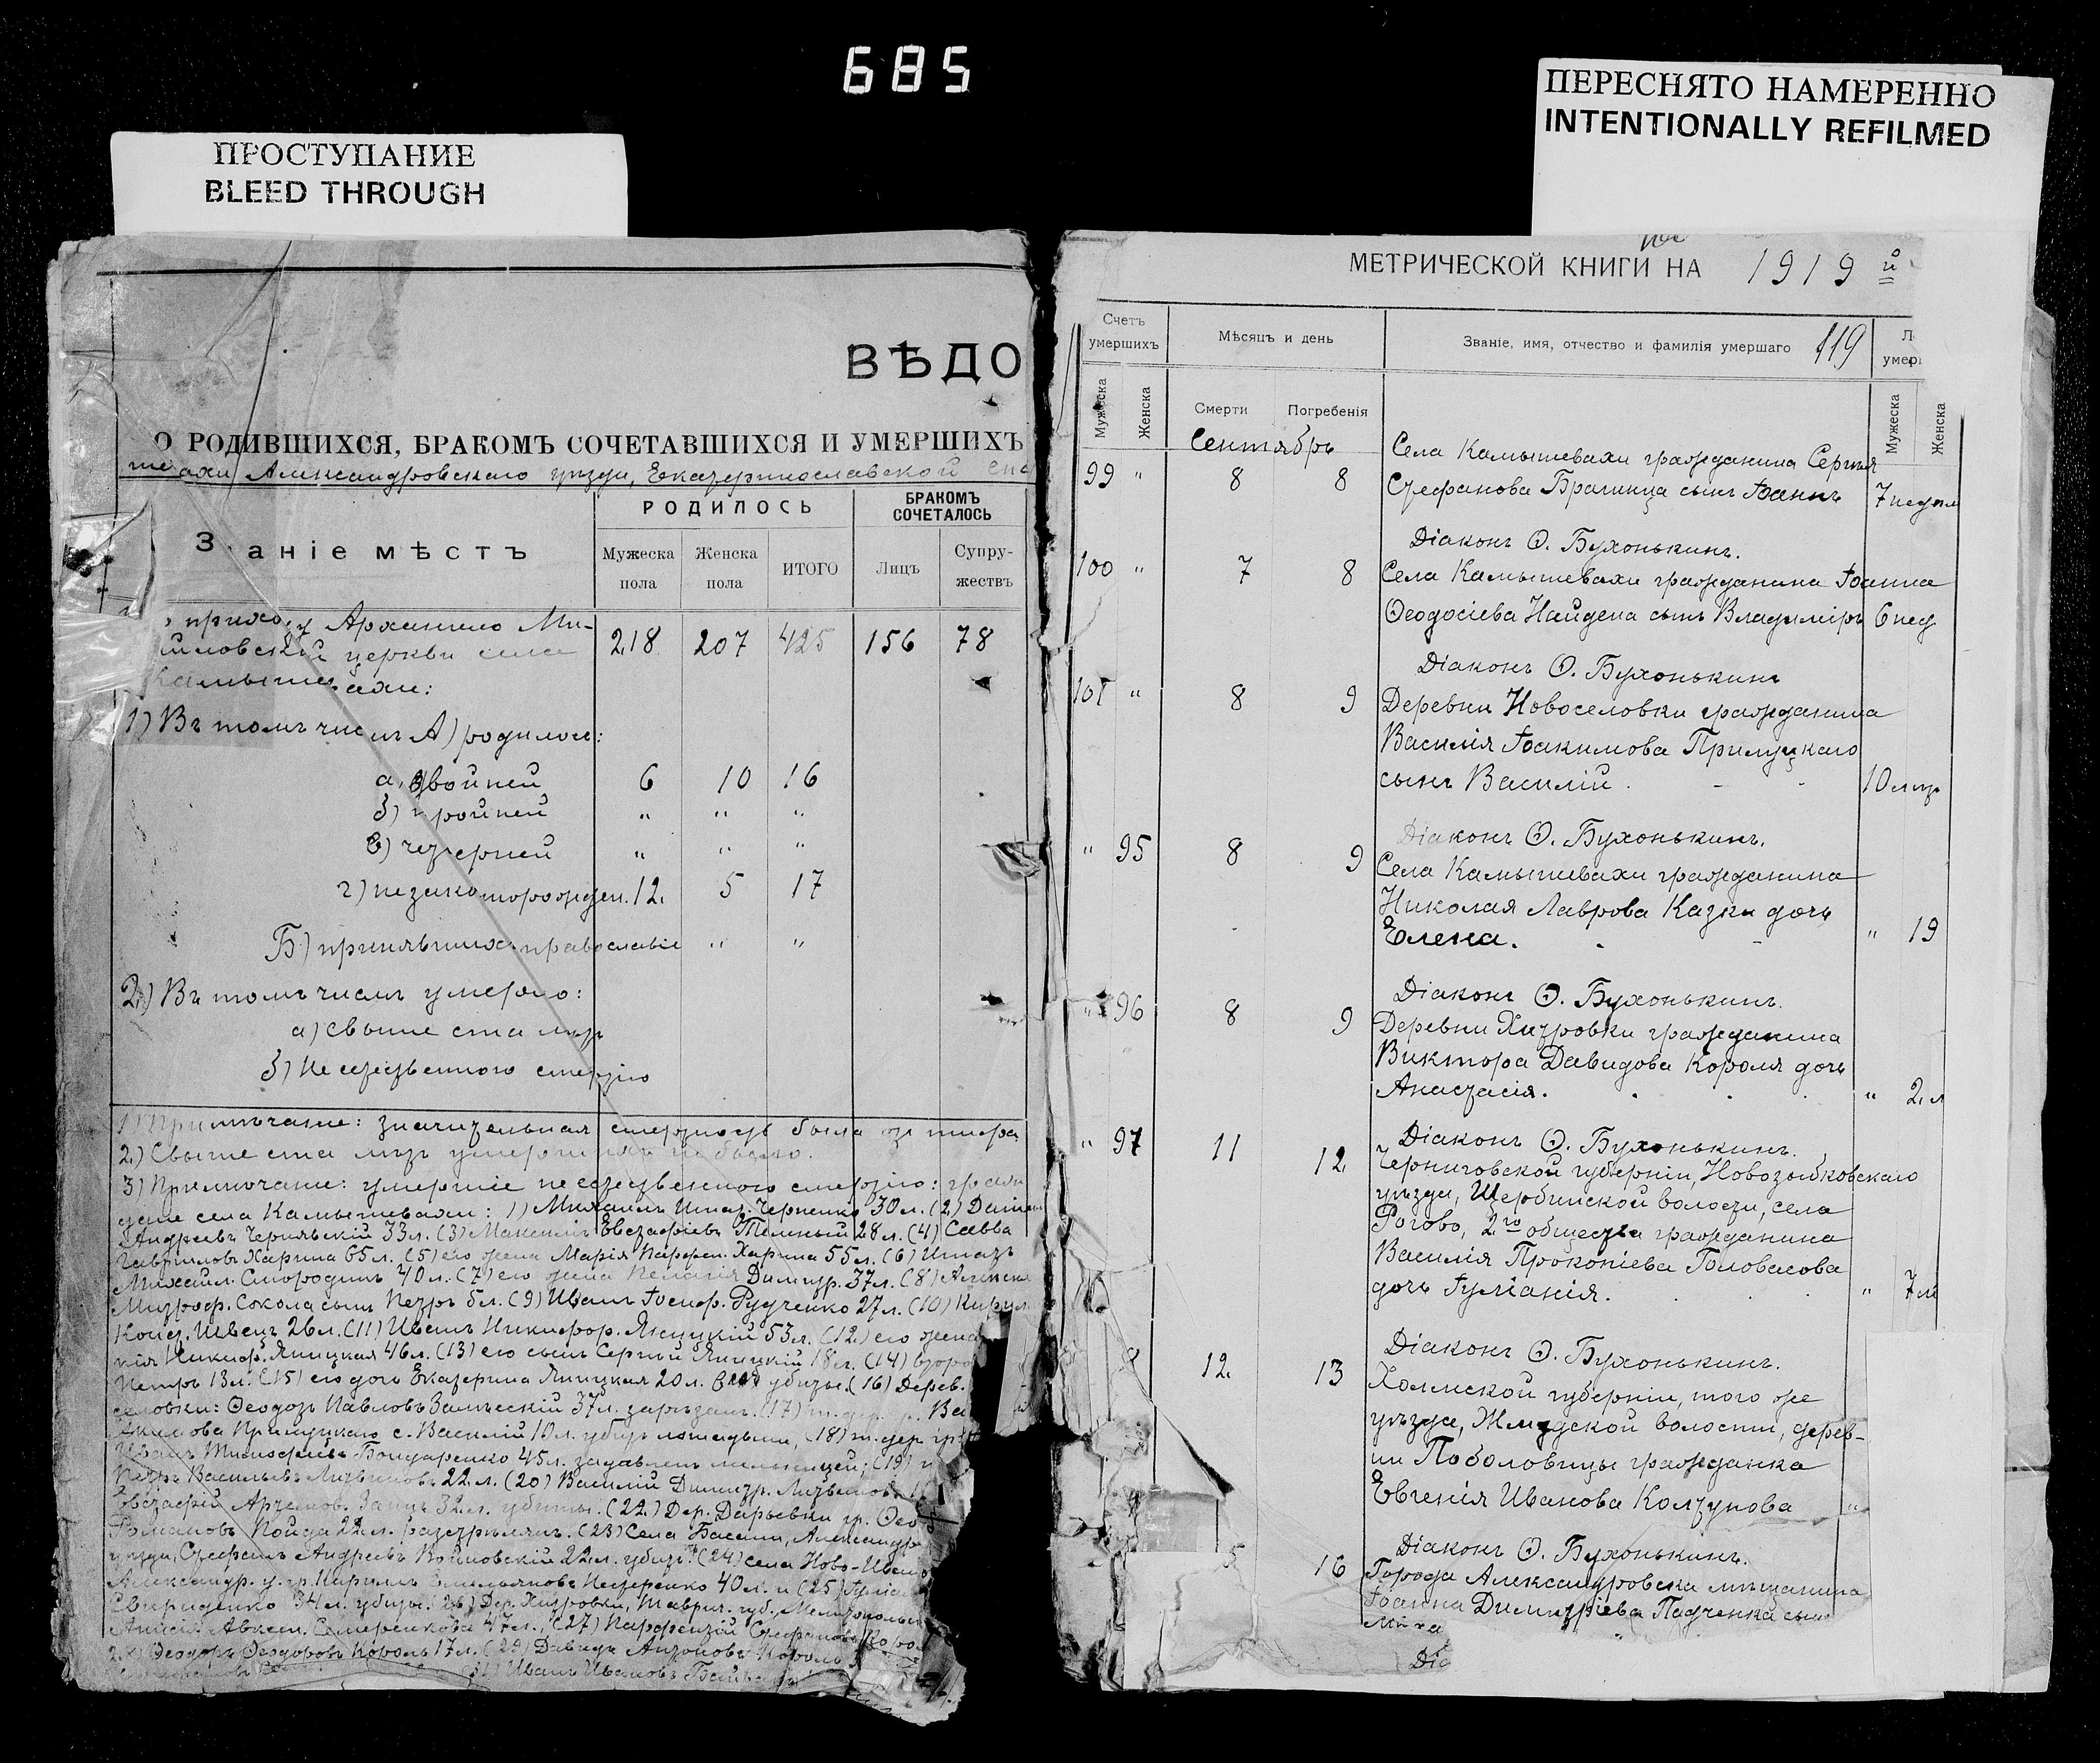 685
ПРОСТУПАНИЕ
BLEED THROUGH
ПЕРЕСНЯТО НАМЕРЕННО
INTENTIONALLY REFILMED
ВѢДО
О РОДИВШИХСЯ, БРАКОМЪ СОЧЕТАВШИХСЯ И УМЕРШИХЪ
Александровскаго уѣзда, Екатеринославской
Званіе мѣстъ
РОДИЛОСЬ
БРАКОМЪ СОЧЕТАЛОСЬ
Мужеска пола
Женска пола
ИТОГО
Лицъ
Супружествъ
приходу Архангело Ми-
церкви села 218 207 425 156 78
1) Въ томъ числѣ А) родилось:
а) двойней 6 10 16
б) тройней " " "
в) четверней " " "
г) незаконорожден. 12. 5 17
Б) принявшихъ православіе " "
2) Въ томъ числѣ умерло:
а) свыше ста лѣтъ
б) Неестественного смертію
1) Примѣчаніе: значительная смертность была отъ тифа
2) Свыше ста лѣтъ умершихъ не было.
3) Примѣчаніе: умершіе неестественного смертію: граж
дане села Камышевахи: 1) Михаилъ Игнат. Черненко 30 л. (2)
Андреевъ Чернявскій 33 л. (3) Максимъ Евстафіевъ Темный 28 л. (4) Савва
Гавриловъ Харина 65 л. (5) его жена Марія Парфен. Харина 55 л. (6) Игнатъ
Михайл. Смородинъ 40 л. (7) его жена Пелагія Димитр. 37 л. (8)
Митроф. Сокола сынъ Петръ 5 л. (9) Иванъ Іосиф. Рудченко 27 л. (10)
Швецъ 26 л. (11) Иванъ Никифор. Яницкій 53 л. (12) его жена
Никиф. Яницкая 46 л. (13) его сынъ Сергѣй Яницкій 18 л. (14)
Петръ 13 л. (15) его дочь Екатерина Яницкая 20 л. убиты. (16) Дерев.
Ѳеодотъ Павловъ 37 л. зарѣзанъ. (17)
Прилуцкаго с. Василій 10 л. убитъ лошадьми, (18)
Иванъ Тимофеевъ Бондаренко 45 л. задавленъ мельницей; (19)
Петръ Васильевъ Литвиновъ 22 л. (20) Василій Димитр.
Евстафій Артемов. Заяцъ 32 л. убиты. (22) Дер. Дарьевки гр.
Романовъ Пойда 22 л. разстрѣлянъ. (23) Села Басани, Александр
уѣзда, Стефанъ Андреевъ Войновскій 22 л. убитъ. (24) села Ново-Иван
Александр. у. гр. Кириллъ Емельяновъ Нестеренко 40 л. и (25)
Свириденко 34 л. убиты. 26) Дер. Хитровки, Таврич. губ., Мелитопольск
47 л., (27) Парфентій Стефановъ Коро
Ѳеодоръ Ѳеодоровъ Король 17 л. (29) Давидъ Антоновъ Король
Иванъ Ивановъ
МЕТРИЧЕСКОЙ КНИГИ НА 1919 й
Счетъ умершихъ
Мѣсяцъ и день
Званіе, имя, отчество и фамилія умершаго 119
Мужеска
Женска
Смерти
Погребенія
Мужеска
Женска
Сентябрь
Села Камышевахи гражданина Сергѣя
99 " 8 8 Стефанова Брагинца сынъ Іоаннъ 7 недѣль
Діаконъ Ѳ. Бухонькинъ.
100 " 7 8 Села Камышевахи гражданина Іоанна
Ѳеодосіева Найдена сынъ Владиміръ 6 нед
Діаконъ Ѳ. Бухонькинъ
101 " 8 9 Деревни Новоселовки гражданина
Василія Іоакимова Прилуцкаго
сынъ Василій. 10 лѣтъ
Діаконъ Ѳ. Бухонькинъ.
" 95 8 9 Села Камышевахи гражданина
Николая Лаврова Казки дочь
Елена. " 19
Діаконъ Ѳ. Бухонькинъ.
" 96 8 9 Деревни Хитровки гражданина
Виктора Давидова Короля дочь
Анастасія. " 2. л
Діаконъ Ѳ. Бухонькинъ.
" 97 11 12. Черниговской губерніи, Новозыбковскаго
уѣзда, Щербинской волости, села
Рогово, 2го общества гражданина
Василія Прокопіева Головасова
дочь Іуліанія. " 7 лѣ
Діаконъ Ѳ. Бухонькинъ.
8 12. 13 Холмской губерніи, того же
уѣзда, Жмудской волости, дерев-
ни Поболовицы гражданка
Евгенія Иванова Колтунова "
Діаконъ Ѳ. Бухонькинъ.
5 16 Города Александровска мѣщанина
Іоанна Димитріева Падченка сынъ
Миха
Діа